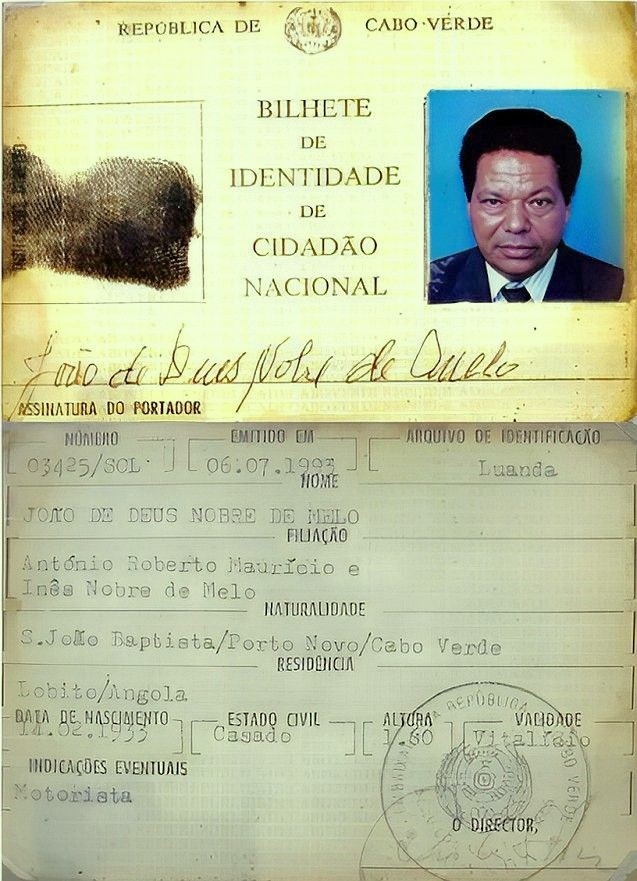 REPÚBLICA DE CABO VERDE
BILHETE
DE
IDENTIDADE
DE
CIDADÃO
NACIONAL
João de Deus Nobre de
ASSINATURA DO PORTADOR
NÚMERO EMITIDO EM ARQUIVO DE IDENTIFICAÇÃO
03425/SOL 06.07.1993 Luanda
NOME
JOÃO DE DEUS NOBRE DE MELO
FILIAÇÃO
António Roberto Maurício e
Inês Nobre de Melo
NATURALIDADE
S.João Baptista/Porto Novo/Cabo Verde
RESIDÊNCIA
Lobito/Angola
DATA DE NASCIMENTO ESTADO CIVIL ALTURA VALIDADE
14.02.1933 Casado 1.60 Vitalício
INDICAÇÕES EVENTUAIS
Motorista
O DIRECTOR,